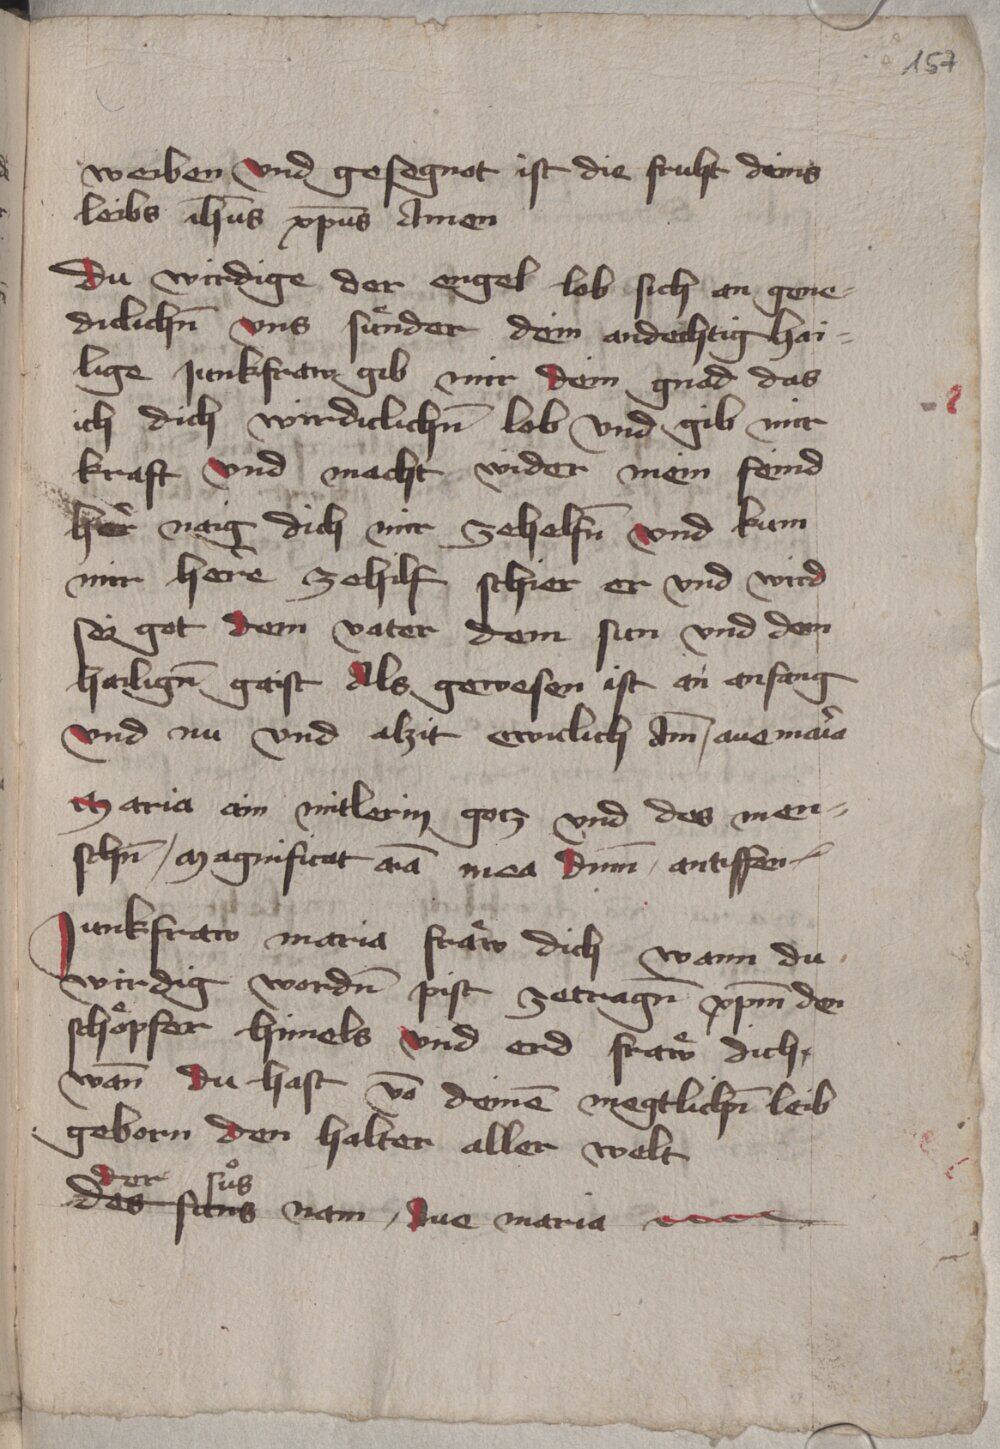 157
weiben vnd gesegnot ist die fruht deins
leibs ih̄us xp̄us Amen
Du wirdige der engel lob sich an gene-
diclichn̄ vns sűnder dein andechtig hai-
lige Junkfraw gib mir dein gnad das
ich dich wirdiclichn̄ lob vnd gib mir
kraft vnd macht wider mein feind
her̄ naig dich mir zehelfn̄ vnd kum
mir her̄e zehilf schier er vnd wird
sey got dem vater dem sun vnd dem
hailign̄ gaist Als gewesen ist an anfang
vnd nu vnd alzit ewiclich Am̄ / aue mar̄ia
Maria ain mitlerin gotz vnd des men-
schn̄ / Magnificat aīa mea dnm̄ / antiffen
Junkfraw maria fräw dich wann du
wirdig wordn̄ pist zetragn̄ xpm̄ den
schöpfer himels vnd erd fraẘ dich
wan̄ du hast vō deinē megtlichn̄ leib
geborn den halter aller welt
der su̇s
des suns nam / Aue maria